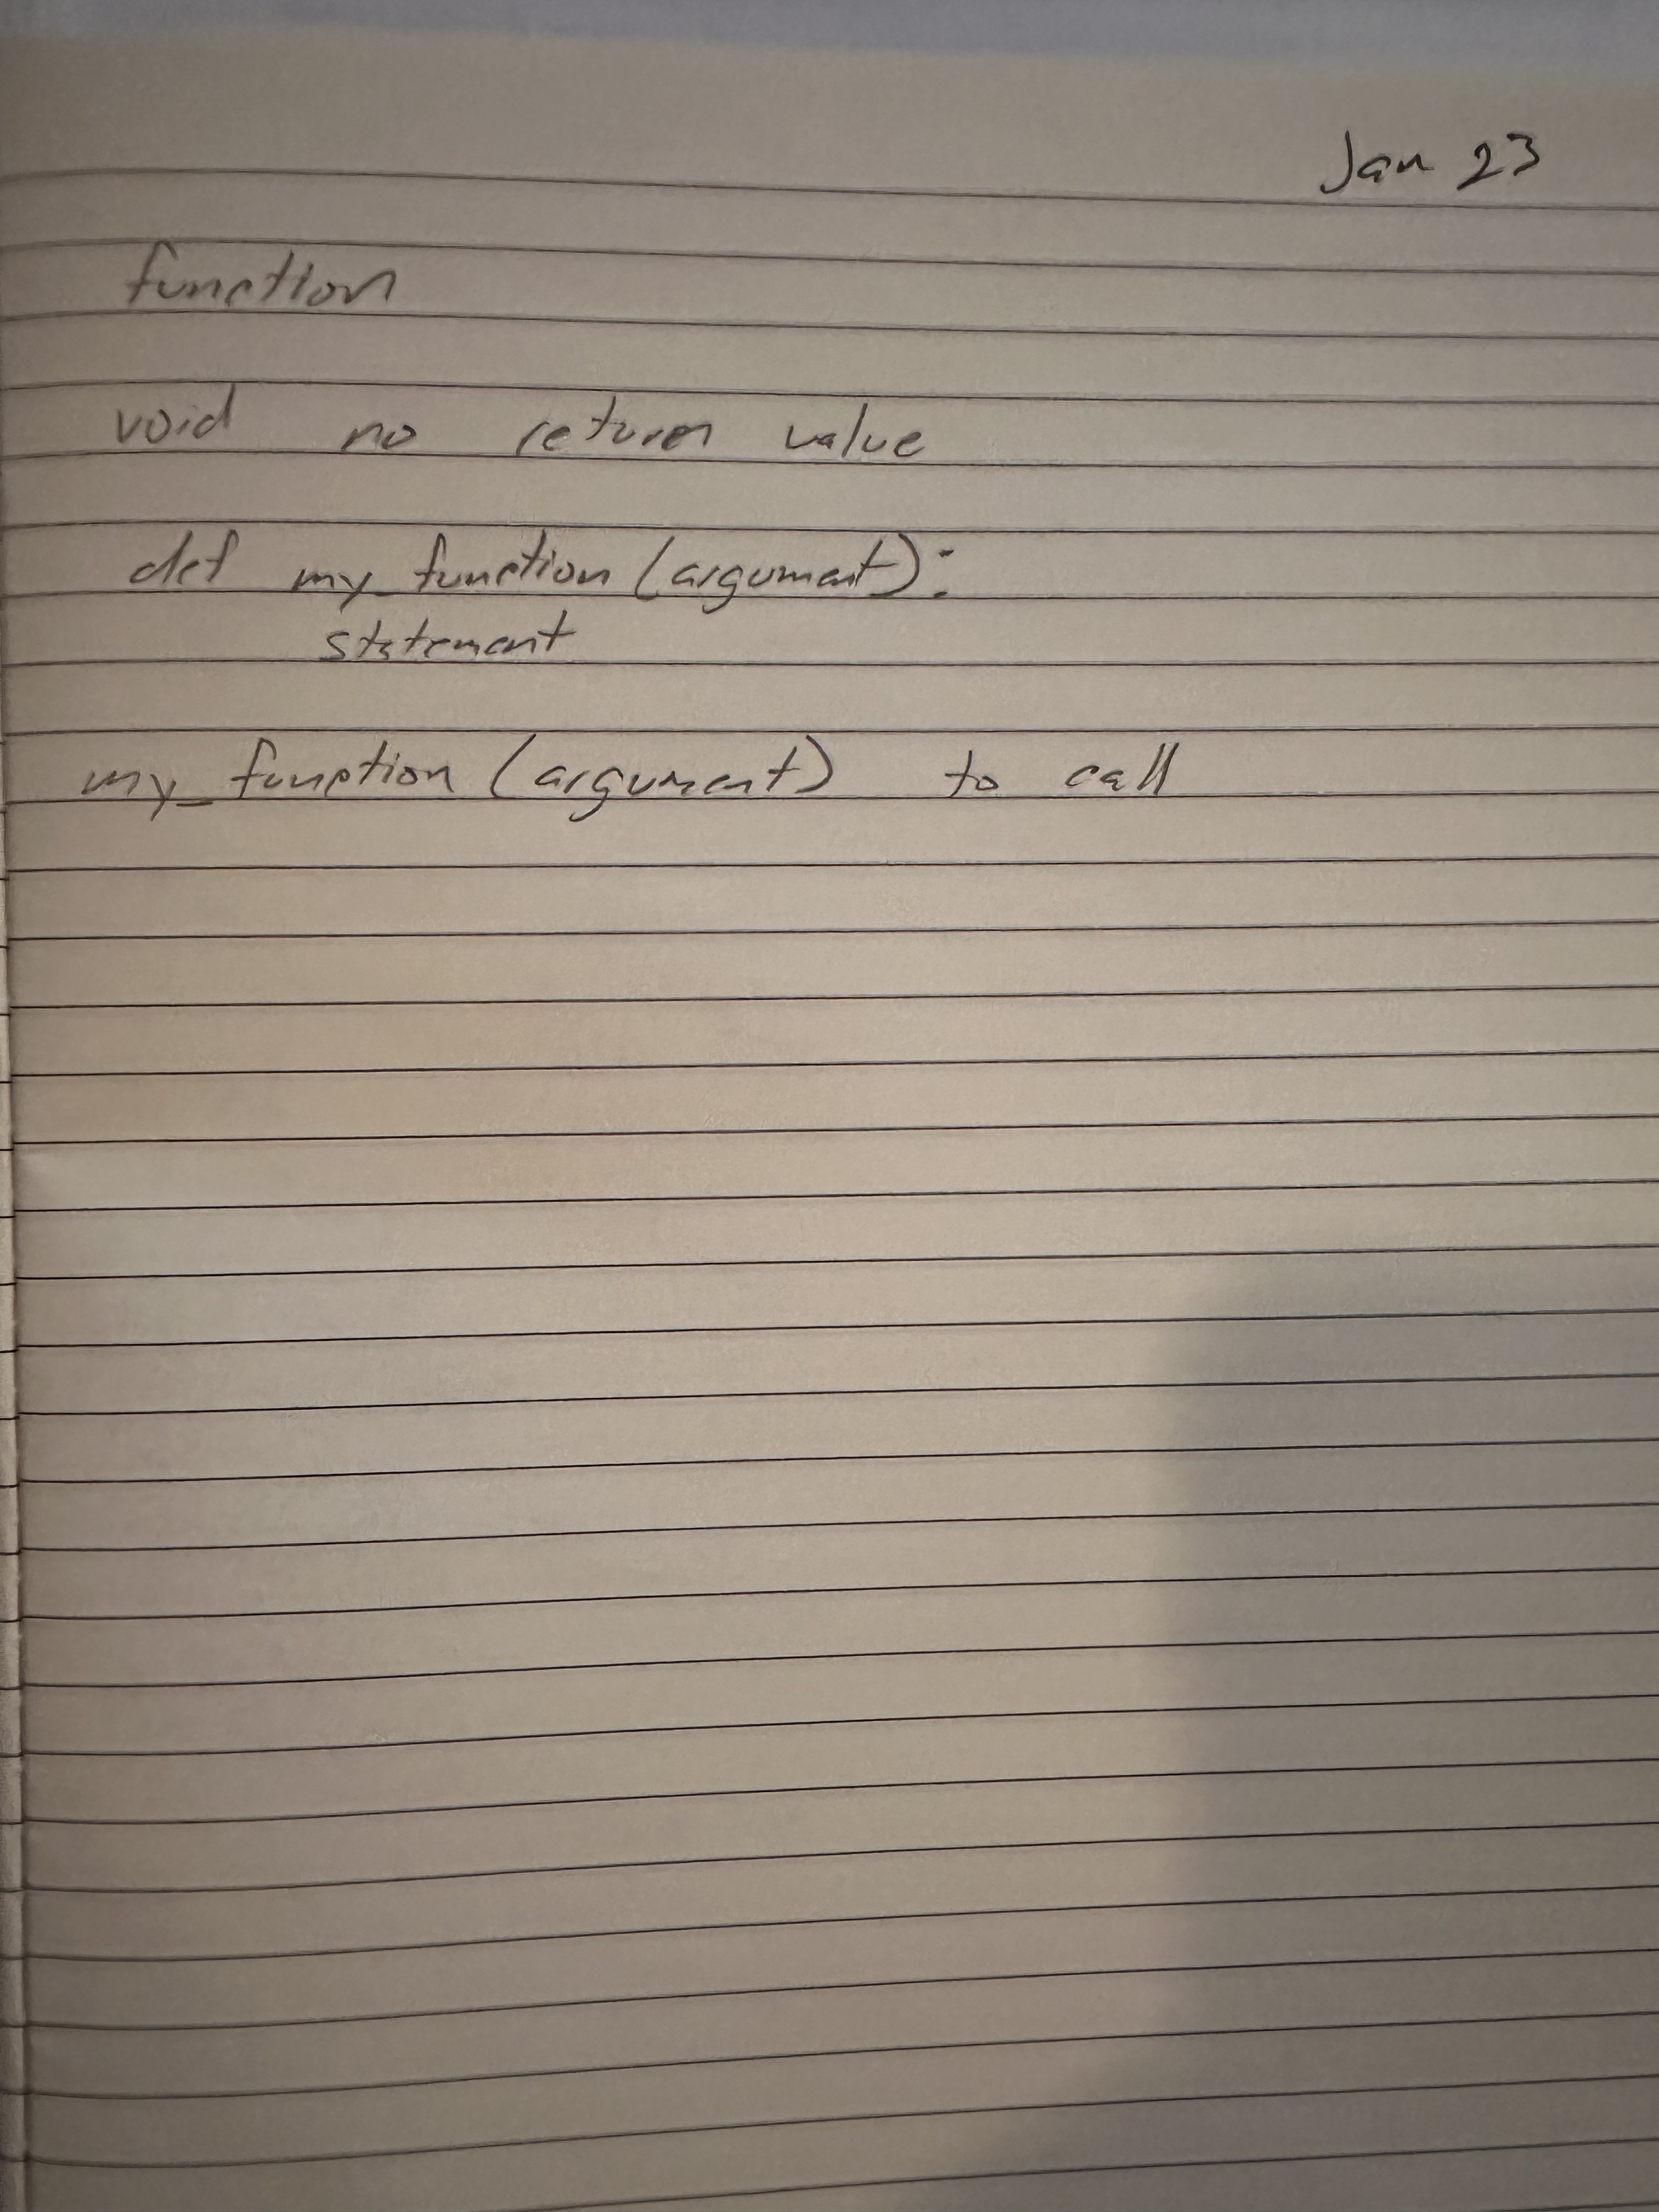 Jan 23
function
void no return value
def my_function (argument):
statement
my_function (argument) to call